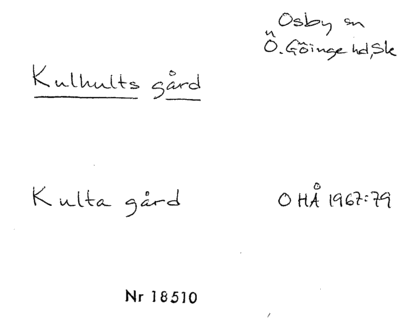 Osby sn
Ö. Göinge hd, Sk
Kulhults gård
Kulta gård OHÅ 1967:79
Nr 18510